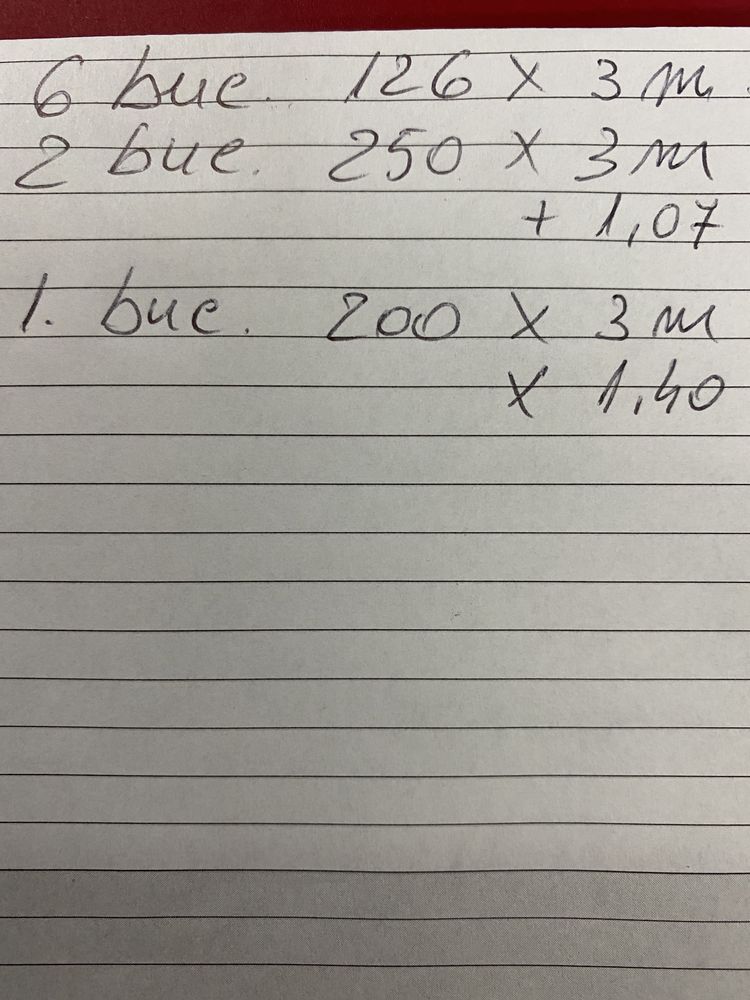 6 buc. 126 x 3 m.
2 buc. 250 x 3 m
+ 1,07
1. buc. 200 x 3 m
x 1,40